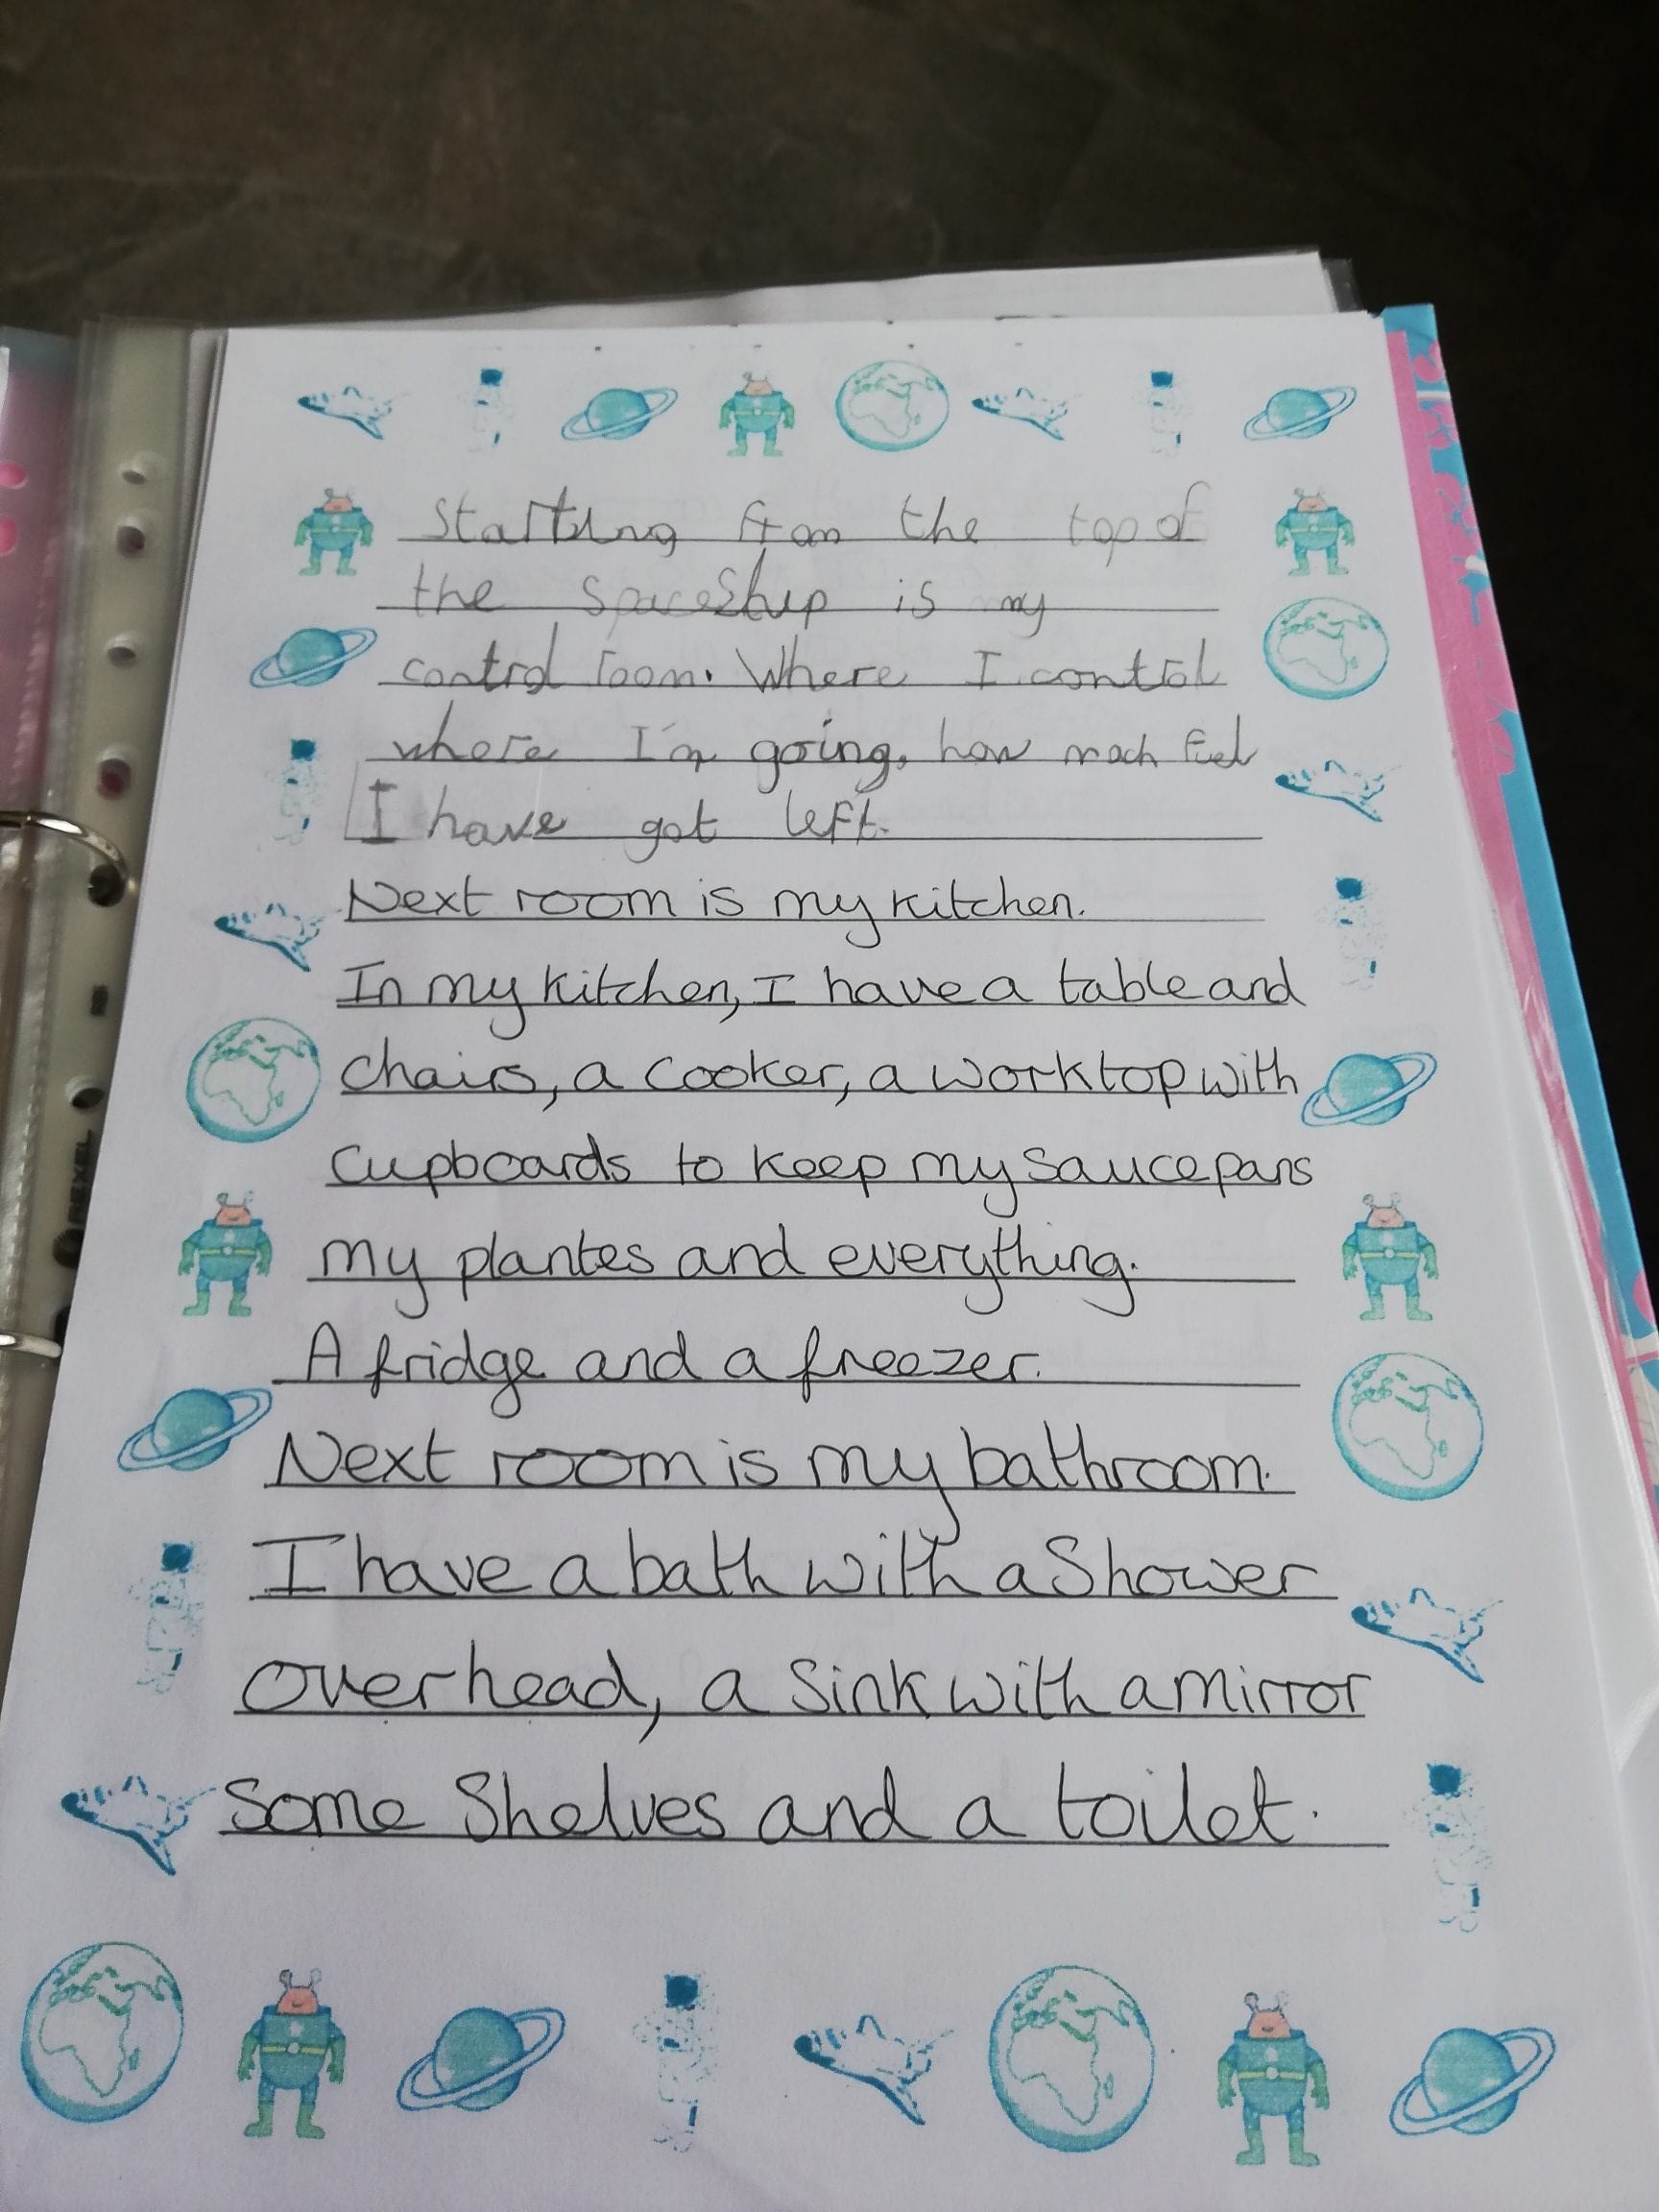 Starting from the top of
the spaceship is my
control room. Where I control
where I'm going, how much fuel
I have got left.
Next room is my kitchen.
In my kitchen, I have a table and
chairs, a cooker, a worktop with
cupboards to keep my saucepans
my plantes and everything.
A fridge and a freezer.
Next room is my bathroom.
I have a bath with a shower
overhead, a sink with a mirror
some shelves and a toilet.